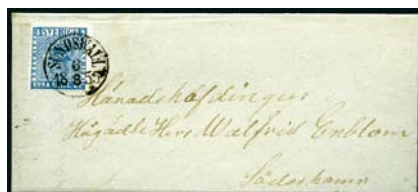 SVERIGE
SUNDSVALL
6
8
Häradshöfdingen
Högädle Herr Walfrid Enblom
Söderhamn